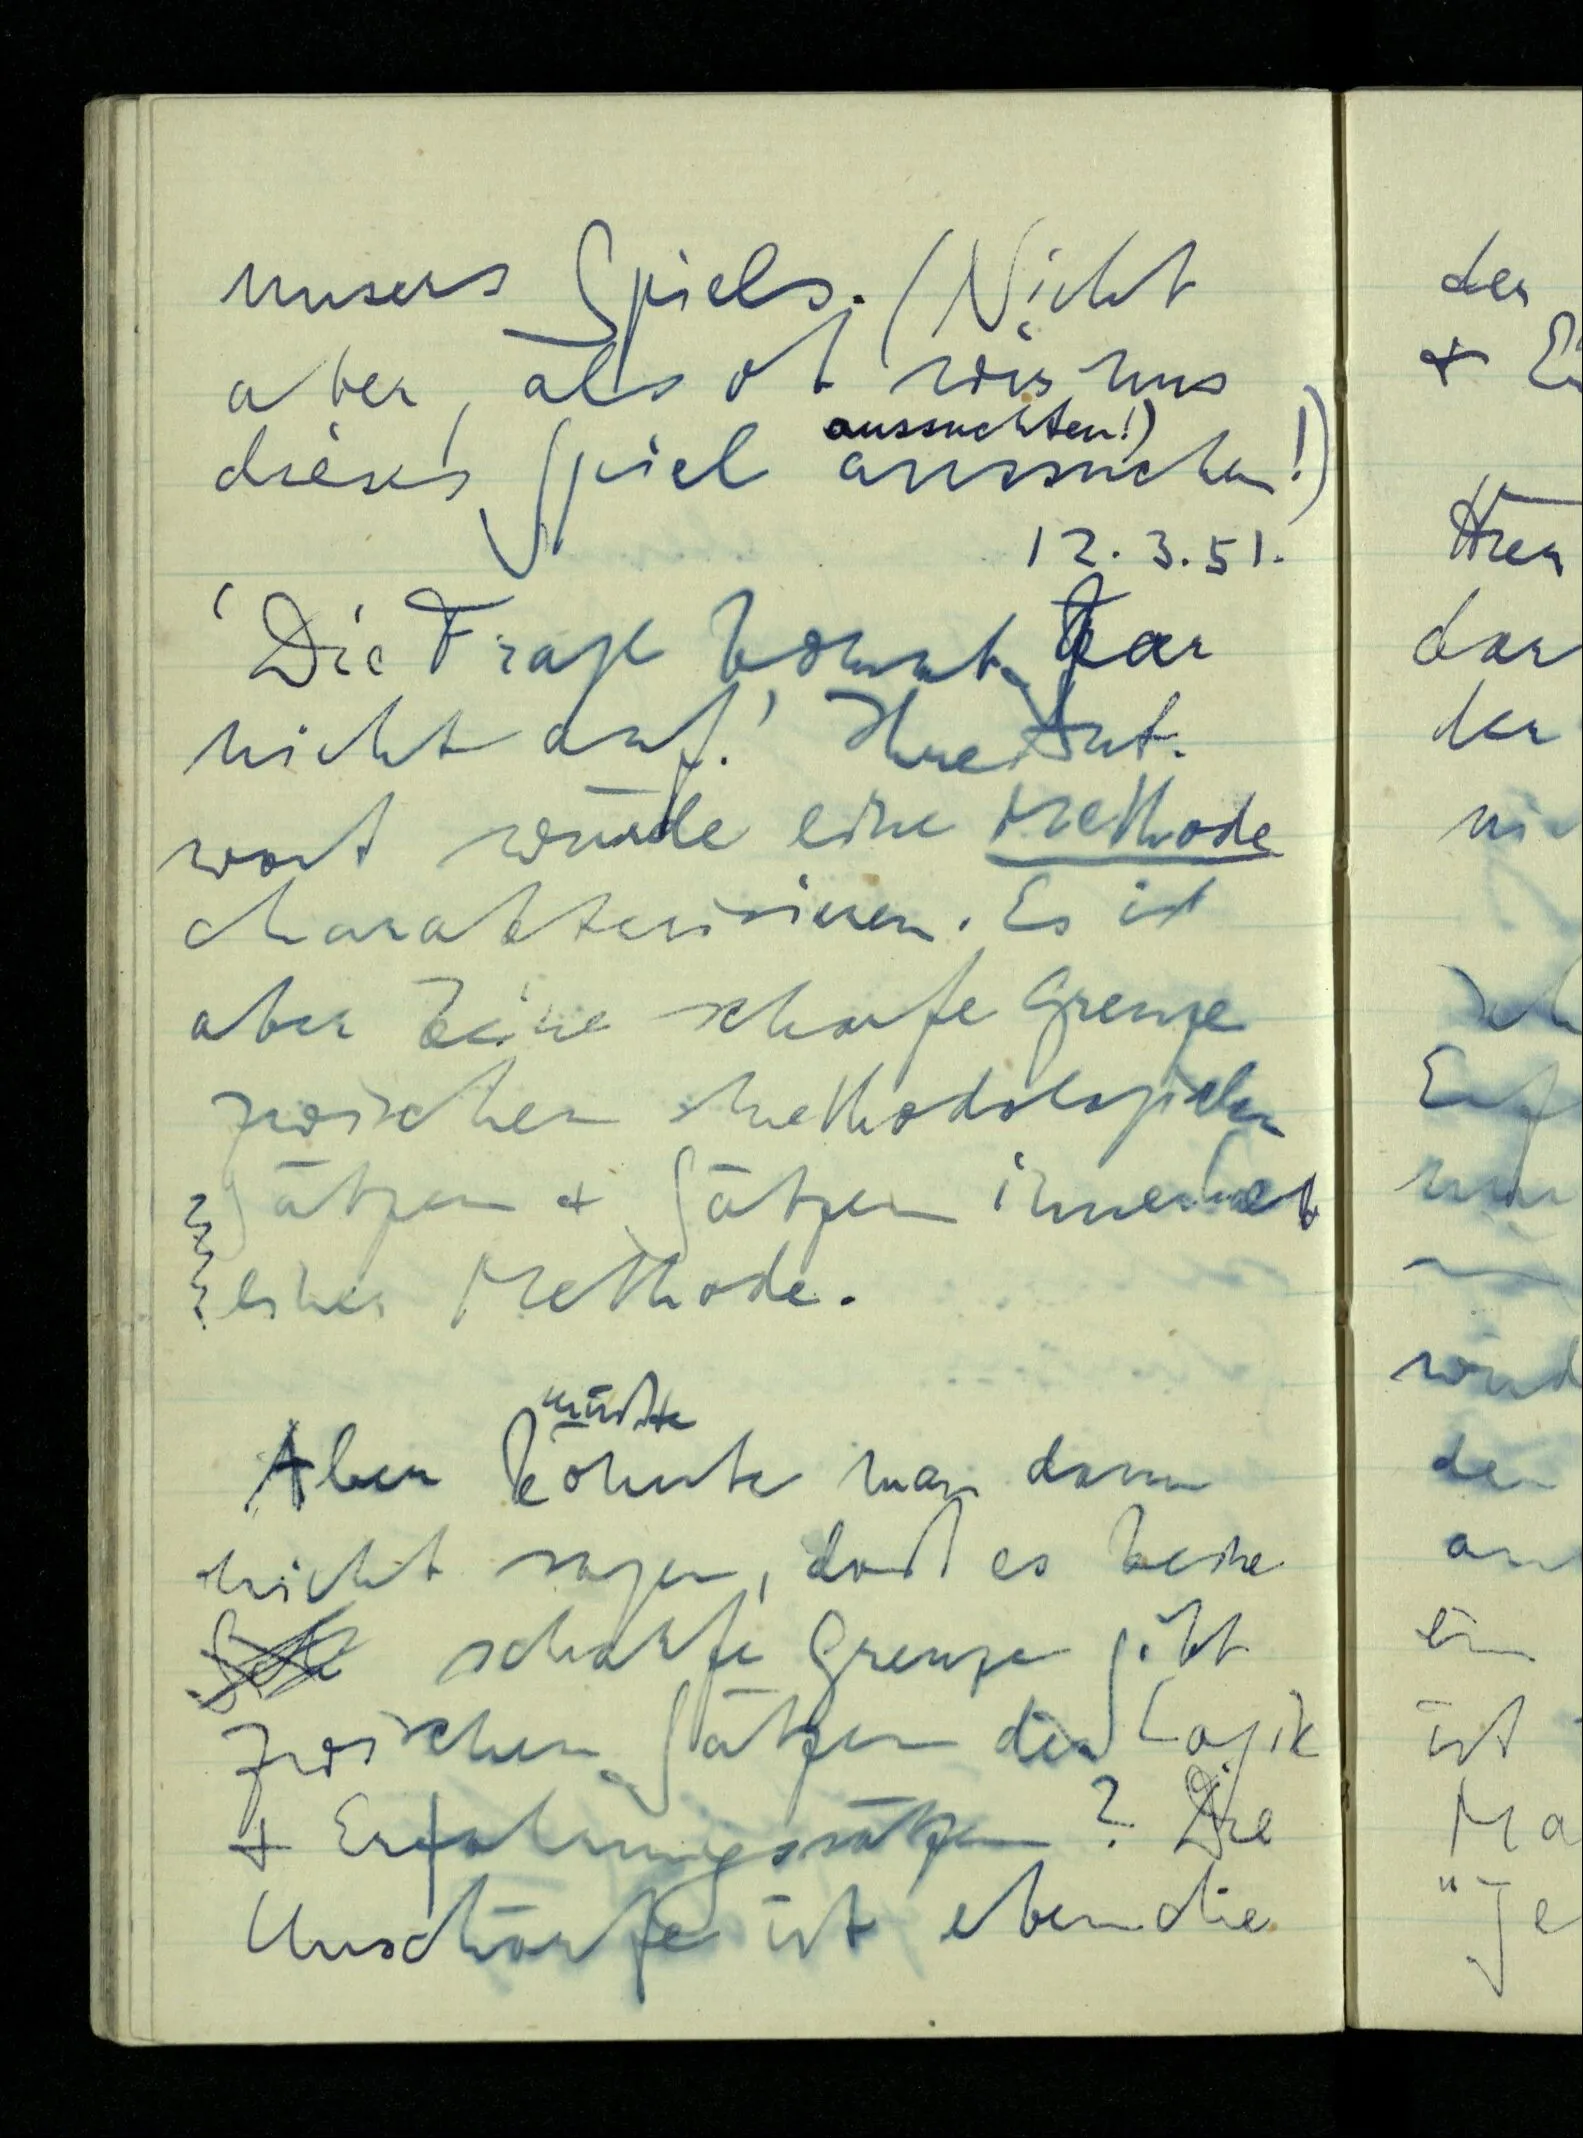 unsers Spiels. (Nicht
aber, als ob wir uns
aussuchten!)
dieses Spiel aussuchen!)
12.3.51.
'Die Frage kommt gar
nicht auf.' Ihre Ant-
wort würde eine Methode
charakterisieren. Es ist
aber keine scharfe Grenze
zwischen methodologischen
Sätzen + Sätzen innerhalb
einer Methode.
müßte
Aber könnte man dann
nicht sagen, daß es keine
scharfe Grenze gibt
zwischen Sätzen der Logik
+ Erfahrungssätzen? Die
Unschärfe ist eben die
der
+
dar
der
den
ein
ist
Ma
"Je